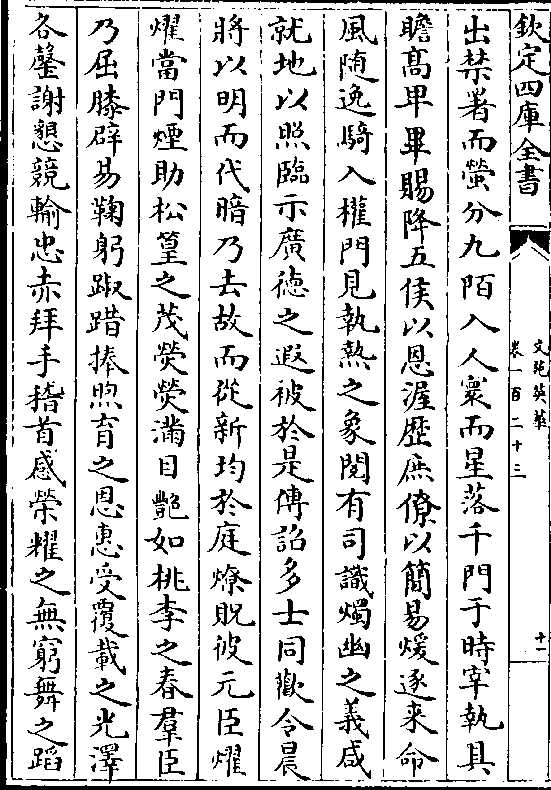 欽定四庫全書
文苑英華
卷一百二十三
十一
出禁署而螢分九陌入人寰而星落千門于時宰執具
瞻髙卑畢賜降五侯以恩渥歴庶僚以簡易煖逐来命
風随逸騎入權門見執熱之象閱有司識燭幽之義咸
就地以照臨示廣徳之遐被於是傳詔多士同歡令晨
將以明而代暗乃去故而從新均於庭燎貺彼元臣耀
燿當門煙助松篁之茂熒熒滿目艷如桃李之春羣臣
乃屈膝辟易鞠躬踧踖捧煦育之恩惠受覆載之光澤
各罄謝懇競輸忠赤拜手稽首感榮耀之無窮舞之蹈